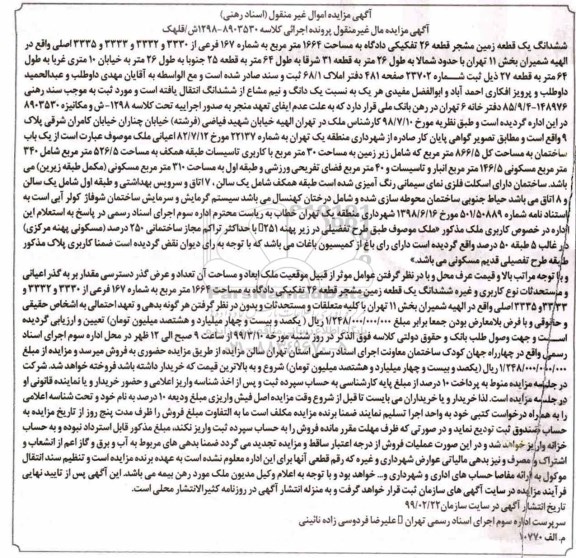 آگهی مزایده اموال غیر منقول (اسناد رهنی)
آگهی مزایده مال غیرمنقول پرونده اجرائی کلاسه ۸۹۰۳۵۳۰-۱۲۹۸ش/قلهک
ششدانگ یک قطعه زمین مشجر قطعه ۲۶ تفکیکی دادگاه به مساحت ۱۶۶۴ متر مربع به شماره ۱۶۷ فرعی از ۳۳۳۰ و ۳۳۳۲ و ۳۳۳۳ و ۳۳۳۵ اصلی واقع در
الهیه شمیران بخش ۱۱ تهران با حدود شمالا به طول ۲۶ متر به قطعه ۳۱ شرقا به طول ۶۴ متر به قطعه ۲۵ جنوبا به طول ۲۶ متر به خیابان ۱۰ متری غربا به طول
۶۴ متر به قطعه ۲۷ ذیل ثبت شماره ۲۳۷۰۲ صفحه ۴۸۱ دفتر املاک ۶۸/۱ ثبت و سند صادر شده است و مع الواسطه به آقایان مهدی داوطلب و عبدالحمید
داوطلب و پرویز افکاری احمد آباد و ابوالفضل مفیدی هر یک به نسبت یک دانگ و نیم مشاع از ششدانگ انتقال یافته است و مورد ثبت به موجب سند رهنی
۱۴۸۹۷۶-۸۵/۹/۴ دفتر خانه ۶ تهران در رهن بانک ملی قرار دارد که به علت عدم ایفای تعهد منجر به صدور اجراییه تحت کلاسه ۱۲۹۸-ش و مکانیزه ۸۹۰۳۵۳۰
در این اداره گردیده است و طبق نظریه مورخ ۹۸/۷/۱۰ کارشناس ملک در تهران الهیه خیابان شهید فیاضی (فرشته) خیابان چناران خیابان کامران شرقی پلاک
۹ واقع است و مطابق تصویر گواهی پایان کار صادره از شهرداری منطقه یک تهران به شماره ۲۲۱۳۷ مورخ ۸۲/۷/۱۲ اعیانی ملک موصوف عبارت است از یک باب
ساختمان به مساحت کل ۸۶۶/۵ متر مربع که شامل زیر زمین به مساحت ۳۰ متر مربع با کاربری تاسیسات طبقه همکف به مساحت ۵۲۶/۵ متر مربع شامل ۳۴۰
متر مربع مسکونی ۱۴۶/۵ متر مربع انبار و تاسیسات و ۴۰ متر مربع فضای تفریحی ورزشی و طبقه اول به مساحت ۳۱۰ متر مربع مسکونی (مکمل طبقه زیرین) می
باشد. ساختمان دارای اسکلت فلزی نمای سیمانی رنگ آمیزی شده است طبقه همکف شامل یک سالن، ۷ اتاق و سرویس بهداشتی و طبقه اول شامل یک سالن
و ۸ اتاق می باشد حیاط جنوبی ساختمان محوطه سازی شده و شامل درختان کهنسال می باشد سیستم گرمایش و سرمایش ساختمان شوفاژ کولر آبی است به
استناد نامه شماره ۵۰۱/۵۰۸۸۹ مورخ ۱۳۹۸/۶/۱۶ شهرداری منطقه یک تهران خطاب به ریاست محترم اداره سوم اجرای اسناد رسمی در پاسخ به استعلام این
اداره در خصوص کاربری ملک مذکور «ملک موصوف طبق طرح تفصیلی در زیر پهنه R۲۵۱ با حداکثر تراکم مجاز ساختمانی ۲۵۰ درصد (مسکونی پهنه مرکزی)
در غالب ۵ طبقه ۵۰ درصد واقع گردیده است دارای رای باغ از کمیسیون باغات می باشد که با توجه به رای دیوان نقض گردیده است ضمنا کاربری پلاک مذکور
طبقه طرح تفصیلی قدیم مسکونی می باشد.»
و با توجه مراتب بالا و قیمت عرف محل و با در نظر گرفتن عوامل موثر از قبیل موقعیت ملک ابعاد و مساحت آن تعداد و عرض گذر دسترسی مقدار بر به گذر اعیانی
و مستحدثات نوع کاربری و غیره ششدانگ یک قطعه زمین مشجر قطعه ۲۶ تفکیکی دادگاه به مساحت ۱۶۶۴ متر مربع به شماره ۱۶۷ فرعی از ۳۳۳۰ و ۳۳۳۲ و
۳۳۳۳و ۳۳۳۵ اصلی واقع در الهیه شمیران بخش ۱۱ تهران با کلیه متعلقات و مستحدثات و بدون در نظر گرفتن هر گونه بدهی و تعهد احتمالی به اشخاص حقیقی
و حقوقی و با فرض بلامعارض بودن جمعا برابر مبلغ ۱/۲۴۸/۰۰۰/۰۰۰/۰۰۰ ریال (یکصد و بیست و چهار میلیارد و هشتصد میلیون تومان) تعیین و ارزیابی گردیده
است و جهت وصول طلب بانک و حقوق دولتی کلاسه فوق الذکر در روز شنبه مورخه ۹۹/۳/۱۰ از ساعت ۹ صبح الی ۱۲ ظهر در محل اداره سوم اجرای اسناد
رسمی واقع در چهارراه جهان کودک ساختمان معاونت اجرای اسناد رسمی استان تهران سالن مزایده از طریق مزایده حضوری به فروش میرسد و مزایده از مبلغ
۱/۲۴۸/۰۰۰/۰۰۰/۰۰۰ ریال (یکصد و بیست و چهار میلیارد و هشتصد میلیون تومان) شروع و به بالاترین قیمت که خریدار داشته باشد فروخته خواهد شد. شرکت
در جلسه مزایده منوط به پرداخت ۱۰ درصد از مبلغ پایه کارشناسی به حساب سپرده ثبت و پس از اخذ شناسه واریز اعلامی و حضور خریدار و یا نماینده قانونی او
در جلسه مزایده است. لذا خریدار و یا خریداران می بایست تا قبل از شروع وقت مزایده اصل فیش واریزی مبلغ ودیعه ۱۰ درصد به نام خود و تحت شناسه اعلامی
را به همراه درخواست کتبی خود به واحد اجرا تسلیم نمایند ضمنا برنده مزایده مکلف است ما به التفاوت مبلغ فروش را ظرف مدت پنج روز از تاریخ مزایده به
حساب صندوق ثبت تودیع نماید و در صورتی که ظرف مهلت مقرر مانده فروش را به حساب سپرده ثبت واریز نکند، مبلغ مذکور قابل استرداد نبوده و به حساب
خزانه واریز خواهد شد و در این صورت عملیات فروش از درجه اعتبار ساقط و مزایده تجدید می گردد ضمنا بدهی های مربوط به آب و برق و گاز اعم از انشعاب و
اشتراک و مصرف و نیز بدهی مالیاتی عوارض شهرداری و غیره که رقم قطعی آنها برای این اداره معلوم نشده است به عهده برنده مزایده است و تنظیم سند انتقال
موکول به ارائه مفاصا حساب های اداری و شهرداری و... خواهد بود و با توجه به اعلام وکیل مدیون ملک مورد رهن بیمه می باشد. این آگهی پس از تایید نهایی
فرآیند مزایده در سایت آگهی های سازمان ثبت قرار خواهد گرفت و به منزله انتشار آگهی در روزنامه کثیرالانتشار محلی است.
تاریخ انتشار آگهی در سایت سازمان ۹۹/۰۲/۲۲
سرپرست اداره سوم اجرای اسناد رسمی تهران علیرضا فردوسی زاده نائینی
م. الف ۱۰۷۷۰